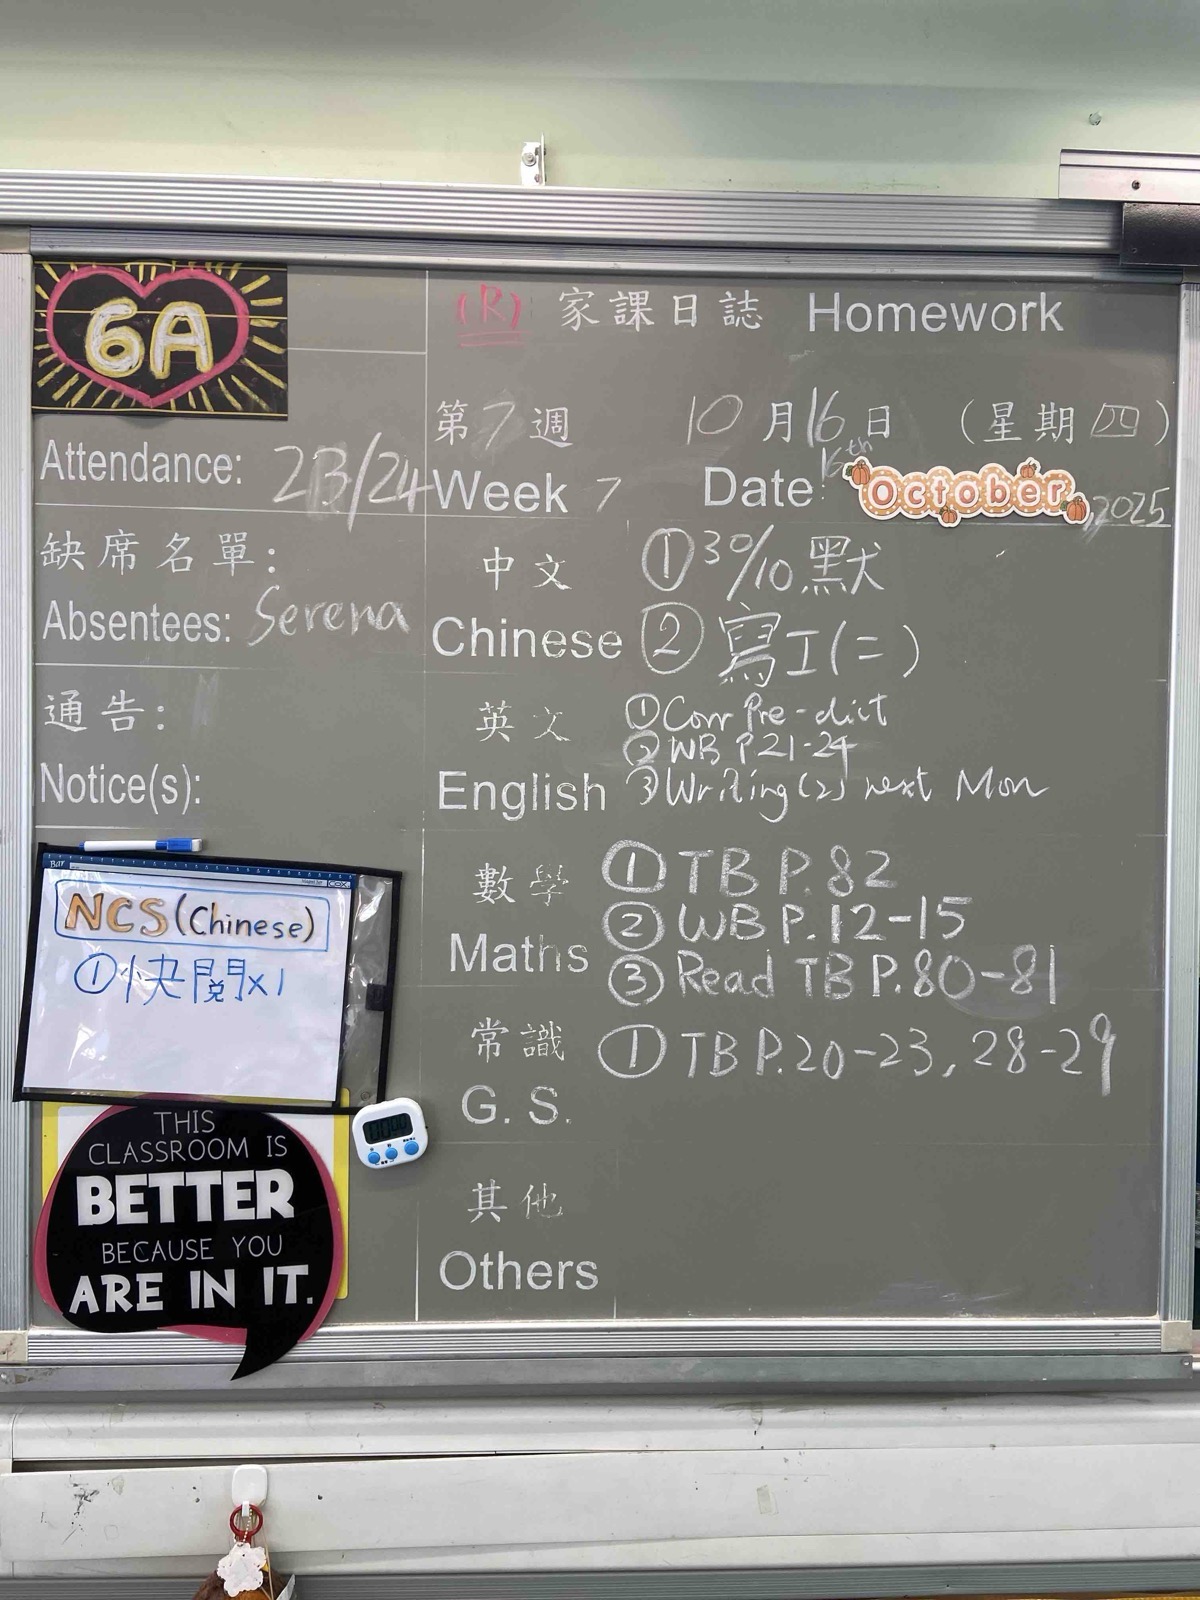 6A
(R) 家課日誌 Homework
第7週 10月16日 (星期四)
Attendance: 23/24
Week 7 Date 16th October, 2025
缺席名單:
Absentees: Serena
通告:
Notice(s):
中文 ①30/10默
Chinese ②寫工(二)
英文 ①Corr Pre-dict
②WB P.21-24
English ③Writing(2) next Mon
數學 ①TB P.82
②WB P.12-15
Maths ③Read TB P.80-81
常識 ①TB P.20-23, 28-29
G. S.
其他
Others
NCS (Chinese)
①快閱x1
THIS
CLASSROOM IS
BETTER
BECAUSE YOU
ARE IN IT.